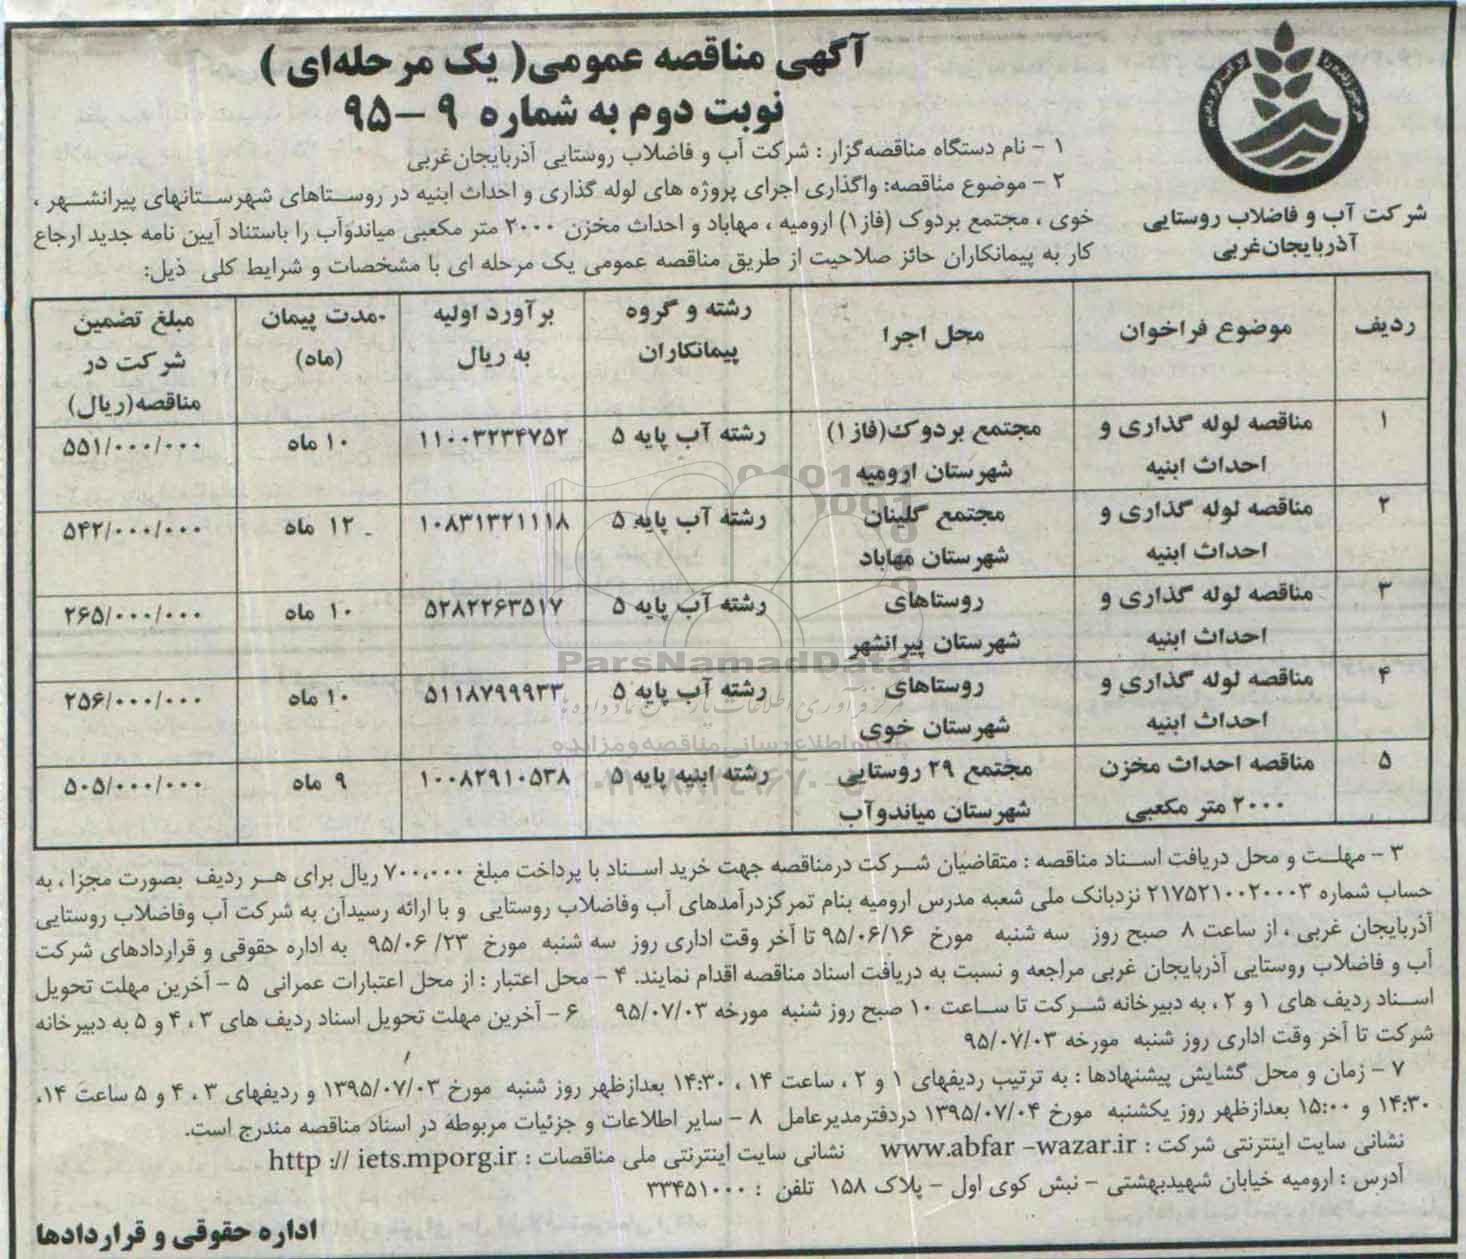 آگهی مناقصه عمومی( یک مرحله‌ای )
نوبت دوم به شماره ۹ -۹۵
شرکت آب و فاضلاب روستایی
آذربایجان‌غربی
۱ - نام دستگاه مناقصه‌گزار : شرکت آب و فاضلاب روستایی آذربایجان‌غربی
۲ - موضوع مناقصه: واگذاری اجرای پروژه های لوله گذاری و احداث ابنیه در روستاهای شهرستانهای پیرانشهر ،
خوی ، مجتمع بردوک (فاز۱) ارومیه ، مهاباد و احداث مخزن ۲۰۰۰ متر مکعبی میاندوآب را باستناد آیین نامه جدید ارجاع
کار به پیمانکاران حائز صلاحیت از طریق مناقصه عمومی یک مرحله ای با مشخصات و شرایط کلی ذیل:
ردیف | موضوع فراخوان | محل اجرا | رشته و گروه پیمانکاران | برآورد اولیه به ریال | مدت پیمان (ماه) | مبلغ تضمین شرکت در مناقصه(ریال)
۱ | مناقصه لوله گذاری و احداث ابنیه | مجتمع بردوک(فاز۱) شهرستان ارومیه | رشته آب پایه ۵ | ۱۱۰۰۳۲۳۴۷۵۲ | ۱۰ ماه | ۵۵۱/۰۰۰/۰۰۰
۲ | مناقصه لوله گذاری و احداث ابنیه | مجتمع گلینان شهرستان مهاباد | رشته آب پایه ۵ | ۱۰۸۳۱۳۲۱۱۱۸ | ۱۲ ماه | ۵۴۲/۰۰۰/۰۰۰
۳ | مناقصه لوله گذاری و احداث ابنیه | روستاهای شهرستان پیرانشهر | رشته آب پایه ۵ | ۵۲۸۲۲۶۳۵۱۷ | ۱۰ ماه | ۲۶۵/۰۰۰/۰۰۰
۴ | مناقصه لوله گذاری و احداث ابنیه | روستاهای شهرستان خوی | رشته آب پایه ۵ | ۵۱۱۸۷۹۹۹۳۳ | ۱۰ ماه | ۲۵۶/۰۰۰/۰۰۰
۵ | مناقصه احداث مخزن ۲۰۰۰ متر مکعبی | مجتمع ۲۹ روستایی شهرستان میاندوآب | رشته ابنیه پایه ۵ | ۱۰۰۸۲۹۱۰۵۳۸ | ۹ ماه | ۵۰۵/۰۰۰/۰۰۰
ParsNamadData
۳ - مهلت و محل دریافت اسناد مناقصه : متقاضیان شرکت درمناقصه جهت خرید اسناد با پرداخت مبلغ ۷۰۰،۰۰۰ ریال برای هر ردیف بصورت مجزا ، به
حساب شماره ۲۱۷۵۲۱۰۰۲۰۰۰۳ نزدبانک ملی شعبه مدرس ارومیه بنام تمرکزدرآمدهای آب وفاضلاب روستایی و با ارائه رسیدآن به شرکت آب وفاضلاب روستایی
آذربایجان غربی ، از ساعت ۸ صبح روز سه شنبه مورخ ۹۵/۰۶/۱۶ تا آخر وقت اداری روز سه شنبه مورخ ۹۵/۰۶/۲۳ به اداره حقوقی و قراردادهای شرکت
آب و فاضلاب روستایی آذربایجان غربی مراجعه و نسبت به دریافت اسناد مناقصه اقدام نمایند. ۴ - محل اعتبار : از محل اعتبارات عمرانی ۵ - آخرین مهلت تحویل
اسناد ردیف های ۱ و ۲ ، به دبیرخانه شرکت تا ساعت ۱۰ صبح روز شنبه مورخه ۹۵/۰۷/۰۳ ۶ - آخرین مهلت تحویل اسناد ردیف های ۳ ، ۴ و ۵ به دبیرخانه
شرکت تا آخر وقت اداری روز شنبه مورخه ۹۵/۰۷/۰۳
۷ - زمان و محل گشایش پیشنهادها : به ترتیب ردیفهای ۱ و ۲ ، ساعت ۱۴ ، ۱۴:۳۰ بعدازظهر روز شنبه مورخ ۱۳۹۵/۰۷/۰۳ و ردیفهای ۳ ، ۴ و ۵ ساعت ۱۴،
۱۴:۳۰ و ۱۵:۰۰ بعدازظهر روز یکشنبه مورخ ۱۳۹۵/۰۷/۰۴ دردفترمدیرعامل ۸ - سایر اطلاعات و جزئیات مربوطه در اسناد مناقصه مندرج است.
نشانی سایت اینترنتی شرکت : www.abfar -wazar.ir نشانی سایت اینترنتی ملی مناقصات : http :// iets.mporg.ir
آدرس : ارومیه خیابان شهیدبهشتی - نبش کوی اول - پلاک ۱۵۸ تلفن : ۳۳۴۵۱۰۰۰
اداره حقوقی و قراردادها